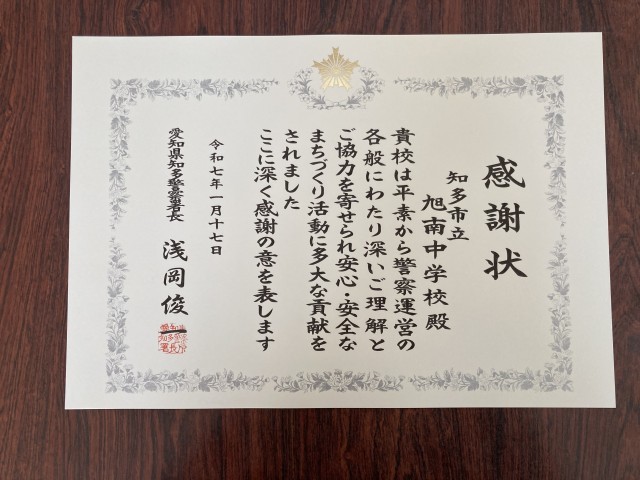 感謝状
知多市立
旭南中学校殿
貴校は平素から警察運営の
各般にわたり深いご理解と
ご協力を寄せられ安心・安全な
まちづくり活動に多大な貢献を
されました
ここに深く感謝の意を表します
令和七年一月十七日
愛知県知多警察署長
浅岡俊一